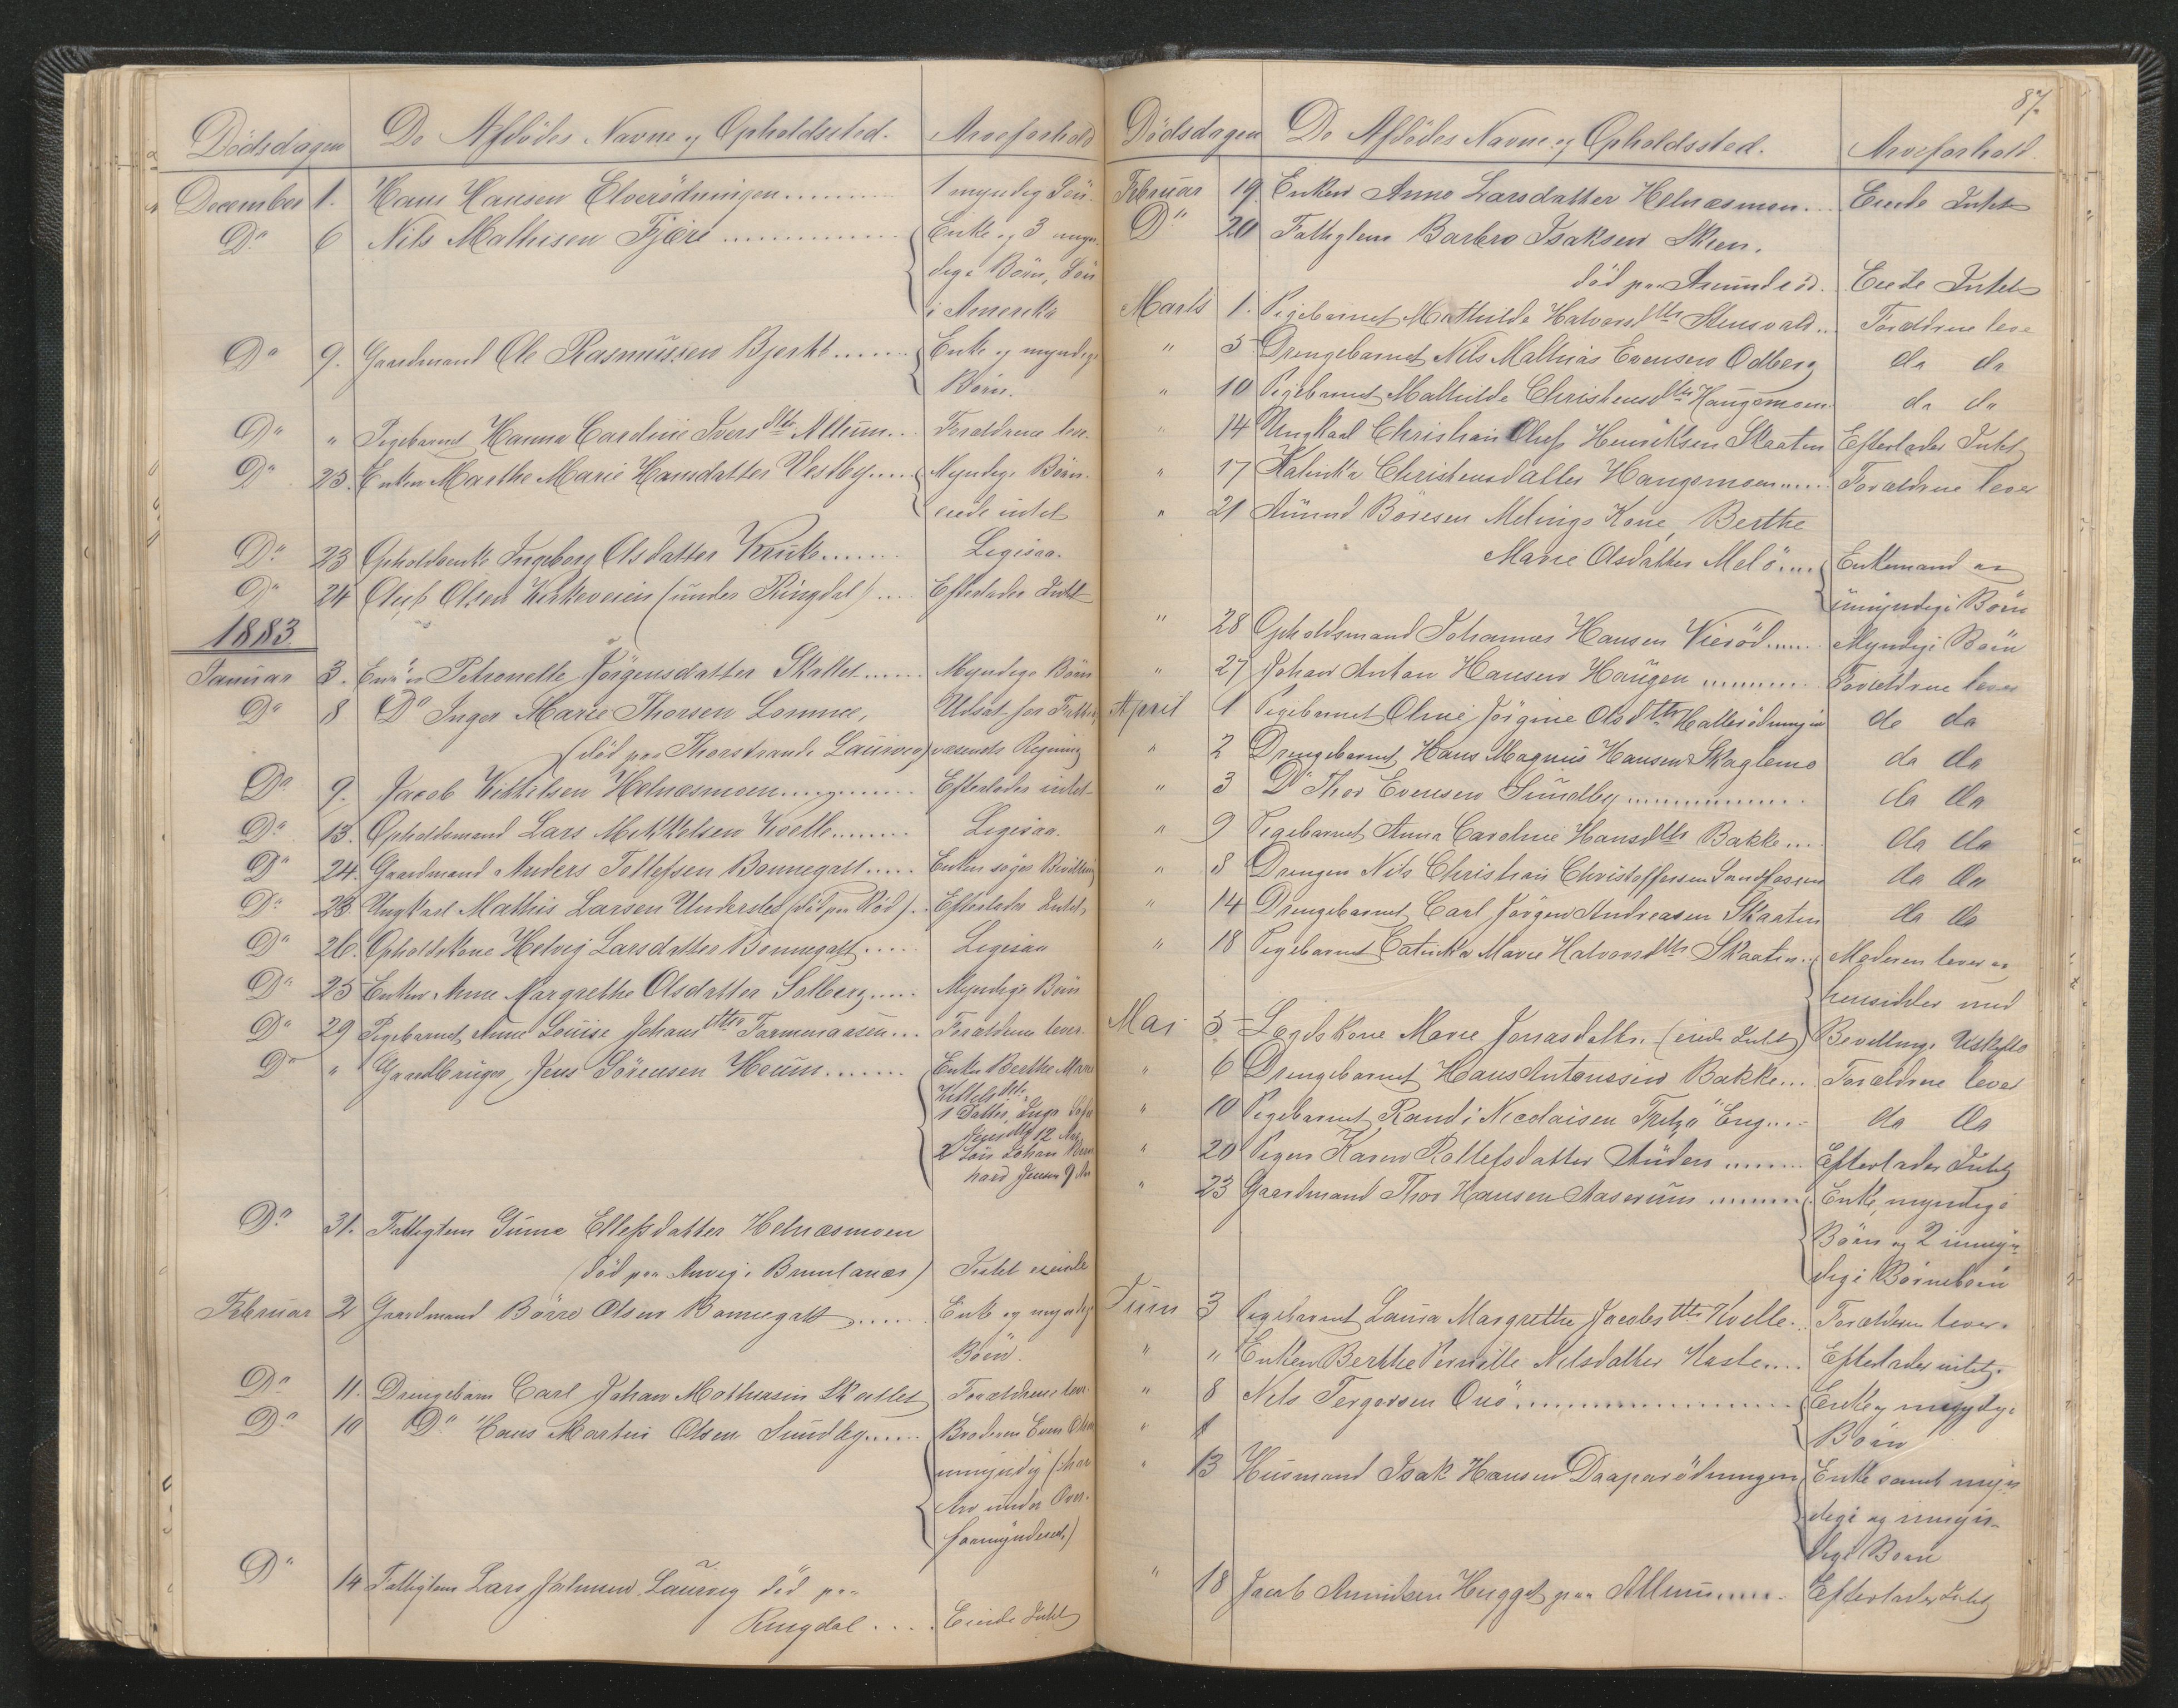 Dödsdagen De Afdödes Navne og Opholdssted. Arveforhold
December 1. Hans Hansen Elverödningen 1 myndig Sön
Do 6 Nils Mathisen Fjære Enke og 3 myn-
dige Börn, Sön
i Amerika
Do 9. Gaardmand Ole Rasmussen Bjerke Enke og myndige
Börn.
Do " Pigebarnet Hanna Caroline Iversdtr Allum Forældrene lever
Do 23. Enken Marthe Marie Hansdatter Vestby Myndige Börn
eiede intet
Do 23 Opholdsenke Ingeborg Olsdatter Krük
Do 24 Oluf Olsen Kirkeveien (under Ringdal) Efterlader Intet
1883.
Januar 3. Enken Petronelle Jörgensdatter Skallet Myndige Börn
Do 8 Do Inger Marie Thorsen Lomme, Udsat for Fattig
(död paa Thorstrand Laurvig) væsenets Regning
Do 9. Jacob Kittilsen Helnæsmoen Efterlader intet
Do 13. Opholdsmand Lars Mikkelsen Kvelle
Do 24. Gaardmand Anders Tollefsen Bonnegalt Enken söger Bevilling
Do 23 Ungkarl Mathis Larsen Undersles (död paa Röd) Efterlader Intet
Do 26. Opholdskone Helvig Larsdatter Bonnegalt
Do 25 Enken Anne Margrethe Olsdatter Solberg Myndige Börn
Do 29 Pigebarnet Anne Louise Johansdtr Forældrene lever
Do " Gaardbruger Jens Sörensen Houm Enken Berthe Marie
Kittelsdtr.
1 Datter, Inga
Jensdtr 12 Aar
2 Sön Johan Bern
hard Jensen 9 Aar
Do 31. Fattiglem Gunne Ellefsdatter Helnæsmoen
(död paa Amvig i Brunlanæs) Intet eiende
Februar 2 Gaardmand Börre Olsen Bonnegalt Enke og myndige
Börn.
Do 11. Drengebarn Carl Johan Mathiasen Skallet Forældrene lever
Do 10 Do Hans Martin Olsen Sundby Broderen Even Olsen
umyndig (har
Arv under Over-
formynderiet)
Do 14 Fattiglem Lars Johnsen Laurvig död paa
Ringdal Eiede Intet
87.
Dödsdagen De Afdödes Navne og Opholdssted. Arveforhold.
Februar 19. Enken Anne Larsdatter Helnæsmoen Eiede Intet
Do 20 Fattiglem Barbro Isaksen Skien.
död paa Amundröd. Eiede Intet
Marts 1. Pigebarnet Mathilde Halvorsdtr Stensvold Forældrene leve
" 5 Drengebarnet Nils Mathias Evensen Odberg do do
" 10 Pigebarnet Mathilde Christensdtr Haugsmoen do do
" 14 Ungkarl Christian Oluf Henriksen Skaaten Efterlader Intet
" 17 Katinka Christensdatter Haugsmoen Forældrene lever
" 21 Amund Böresen Melings Kone, Berthe
Marie Olsdatter Melö Enkemand og
umyndige Börn
" 28 Opholdsmand Johannes Hansen Vieröd Myndige Börn
" 27 Johan Anton Hansen Haugen Forældrene lever
April 1 Pigebarnet Oline Jörgine Olsdtr Halleröдningen do do
" 2 Drengebarnet Hans Magnus Hansen Skaglemo do do
" 3 Do Thor Evensen Sundby do do
" 9 Pigebarnet Anna Caroline Hansdtr Bakke do do
" 8 Drengen Nils Christian Christoffersen Sandfossen do do
" 14 Drengebarnet Carl Jörgen Andreasen Skaaten do do
" 18 Pigebarnet Catinka Marie Halvorsdtr Skaaten Moderen lever og
hensidder med
Mai 5 Legdskone Marie Jonasdatter (eiede Intet) Bevilling i Uskifte
" 6 Drengebarnet Hans Antonsen Bakke Forældrene lever
" 10 Pigebarnet Randi Nicolaisen Fritzö Eng do do
" 20 Pigen Karen Rollefsdatter Auden Efterlader Intet
" 23 Gaardmand Thor Hansen Aaserum Enke, myndige
Börn og 2 umyn-
dige Börnebörn
Juni 3 Pigebarnet Laura Margrethe Jacobsdtr Kvelle Forældrene lever
" " Enken Berthe Pernille Nilsdatter Haslе Efterlader intet
" 8 Nils Tergersen Onö Enke og myndige
" 1 Börn
" 13 Husmand Isak Hansen Daaparödningen Enke samt myn
dige og umyn-
dige Börn
" 18 Jacob Amundsen Hugget paa Allum Efterlader Intet